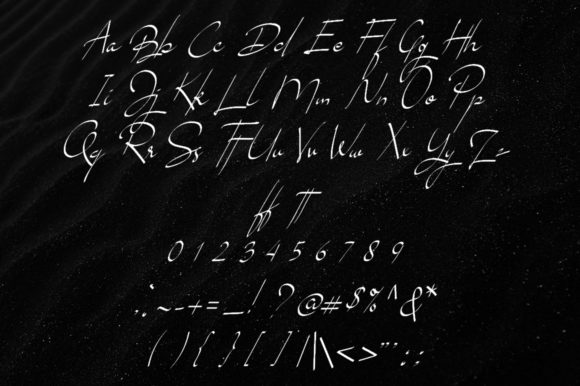 Aa Bb Cc Dd Ee Ff Gg Hh
Ii Jj Kk Ll Mm Nn Oo Pp
Qq Rr Ss Tt Uu Vv Ww Xx Yy Zz
ff tt
0 1 2 3 4 5 6 7 8 9
.,~-+=_!?@#$%^&*
(){}[]/|\<>"':;